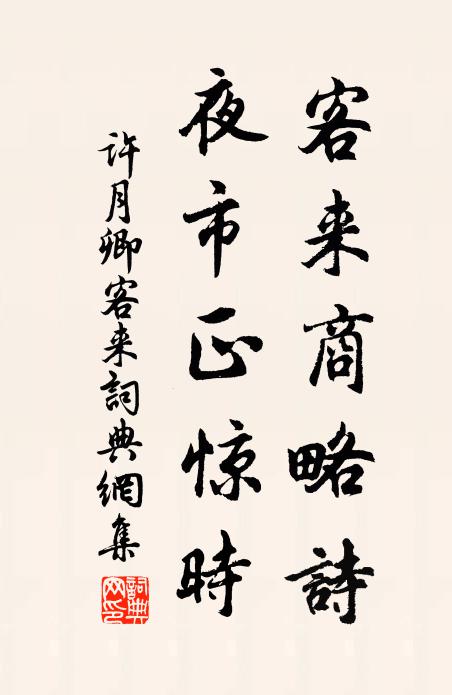 客来商略詩
夜市正惊時
許月卿客来詞典網集
詞典网印